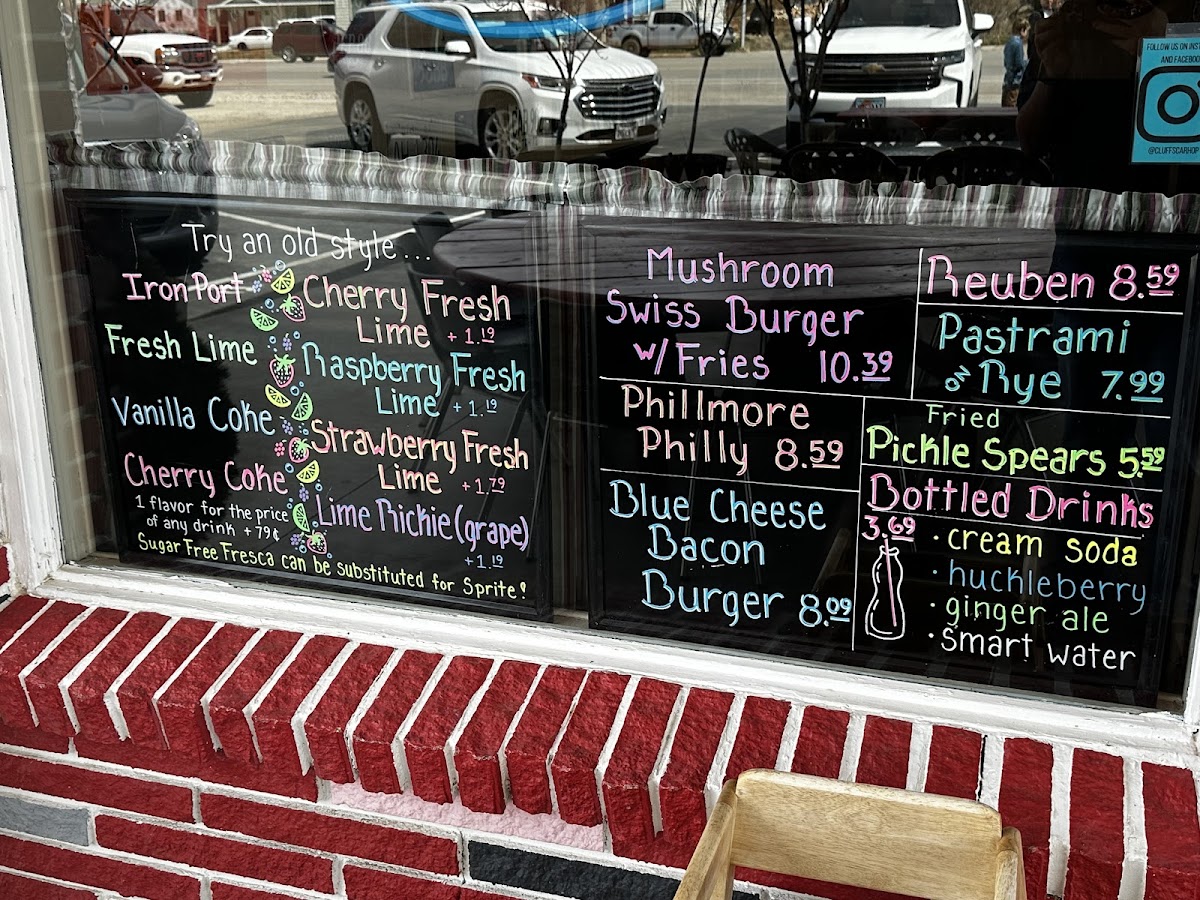 FOLLOW US ON INST
AND FACEBOO
@CLUFFSCARHOP
Try an old style...
Iron Port
Fresh Lime
Vanilla Coke
Cherry Coke
1 flavor for the price
of any drink +79¢
Cherry Fresh
Lime +1.19
Raspberry Fresh
Lime +1.19
Strawberry Fresh
Lime +1.79
Lime Rickie (grape)
+1.19
Sugar Free Fresca can be substituted for Sprite!
Mushroom
Swiss Burger
w/ Fries 10.39
Phillmore
Philly 8.59
Blue Cheese
Bacon
Burger 8.09
Reuben 8.59
Pastrami
on Rye 7.99
Fried
Pickle Spears 5.59
Bottled Drinks
3.69
· cream soda
· huckleberry
· ginger ale
· Smart water